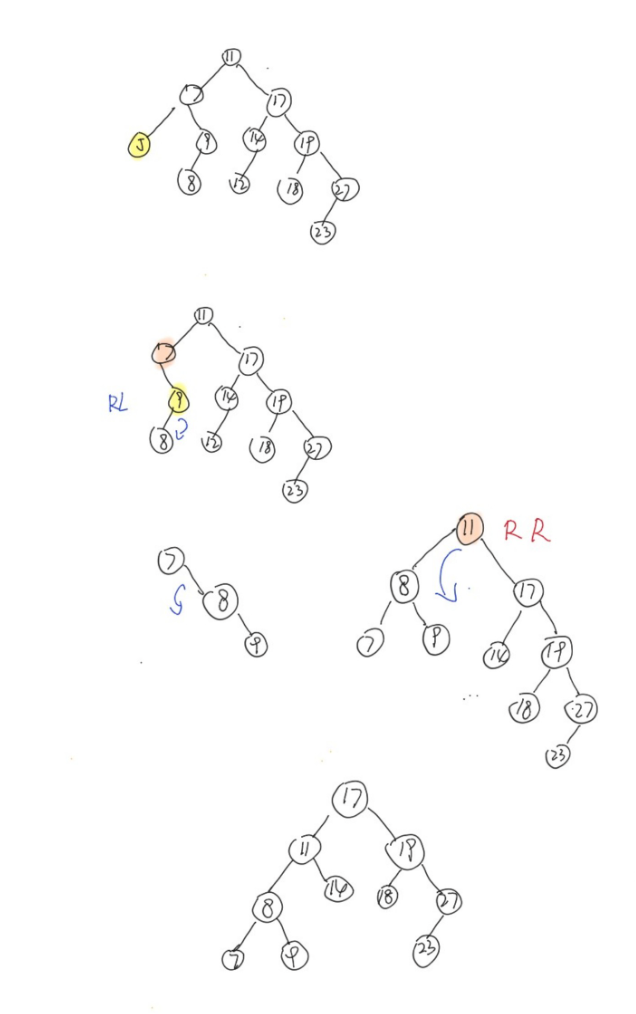 11
7 17
5 9 14 19
8 12 18 27
23
11
7 17
RL 9 14 19
8 12 18 27
23
7
8
9
11 RR
8 17
7 9 14 19
...
18 27
23
17
11 19
8 14 18 27
7 9 23